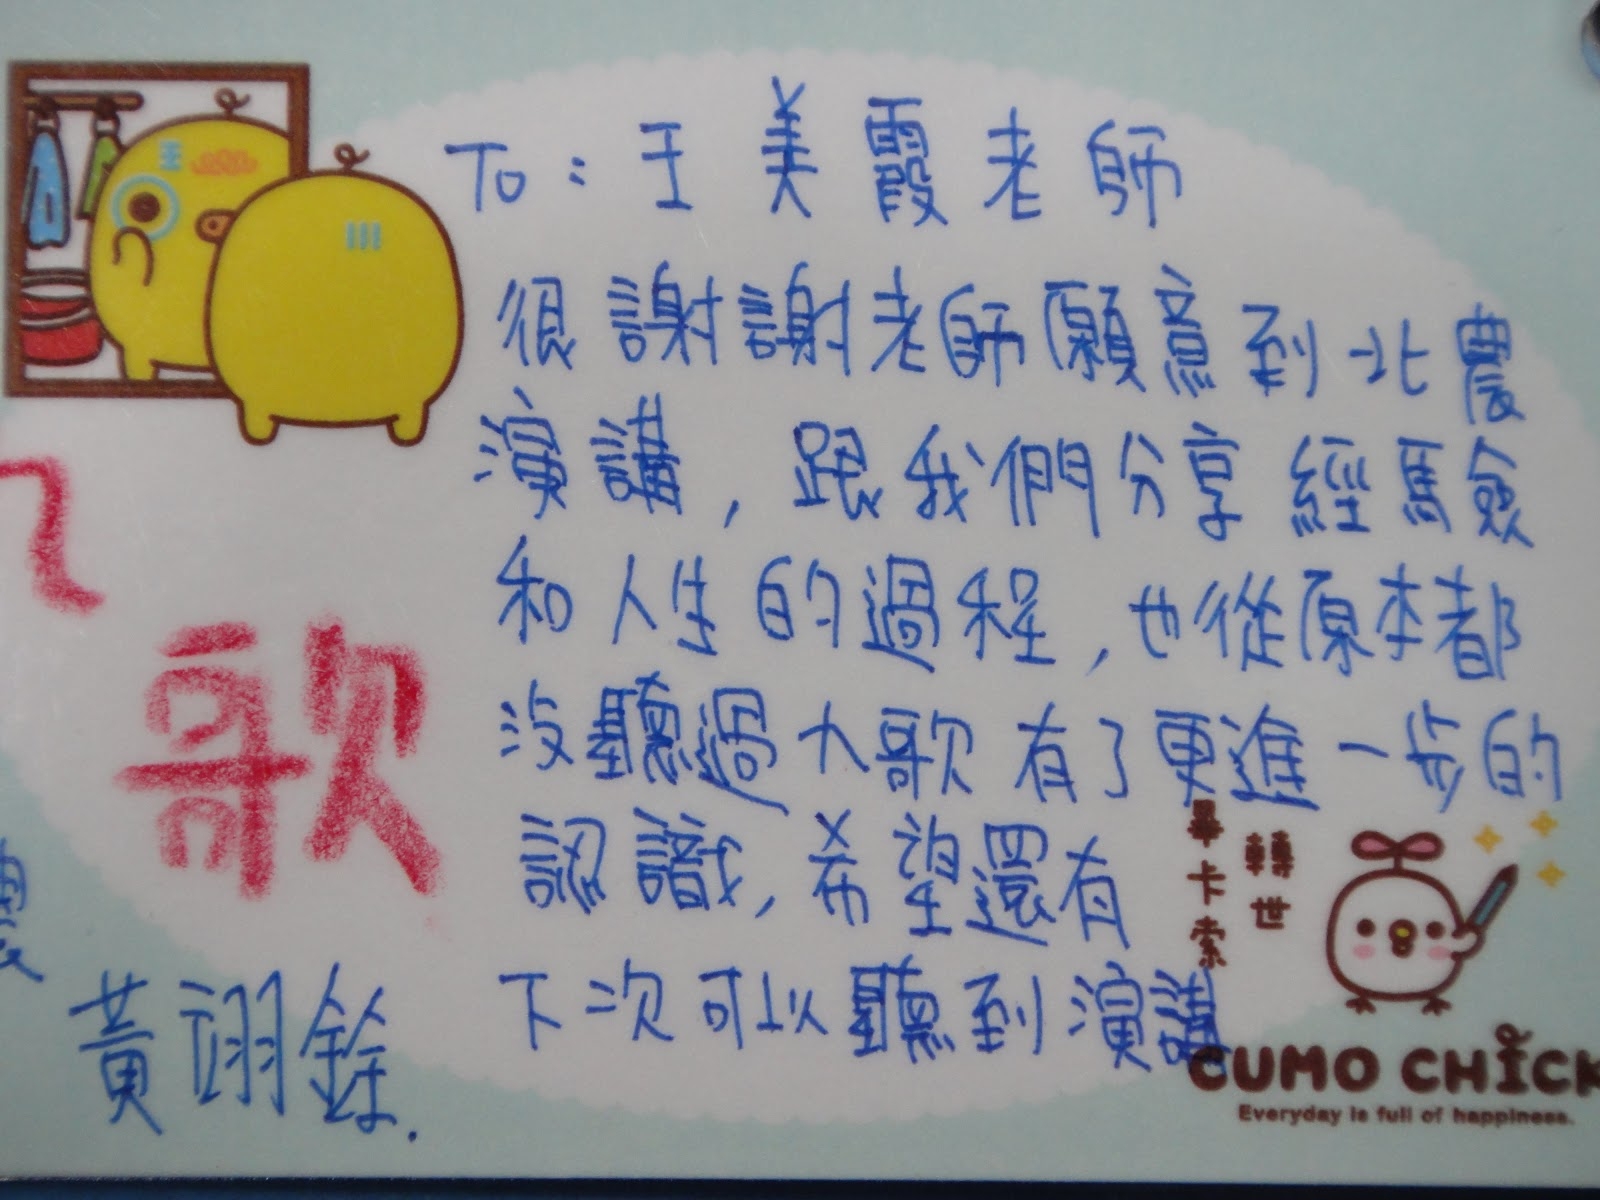 To：王美霞老師
很謝謝老師願意到北農
演講，跟我們分享經驗
和人生的過程，也從原本都
沒聽過大歌有了更進一步的
認識，希望還有
下次可以聽到演講
歌
黃翊
轉世
畢卡索
CUMO CHICK
Everyday is full of happiness.